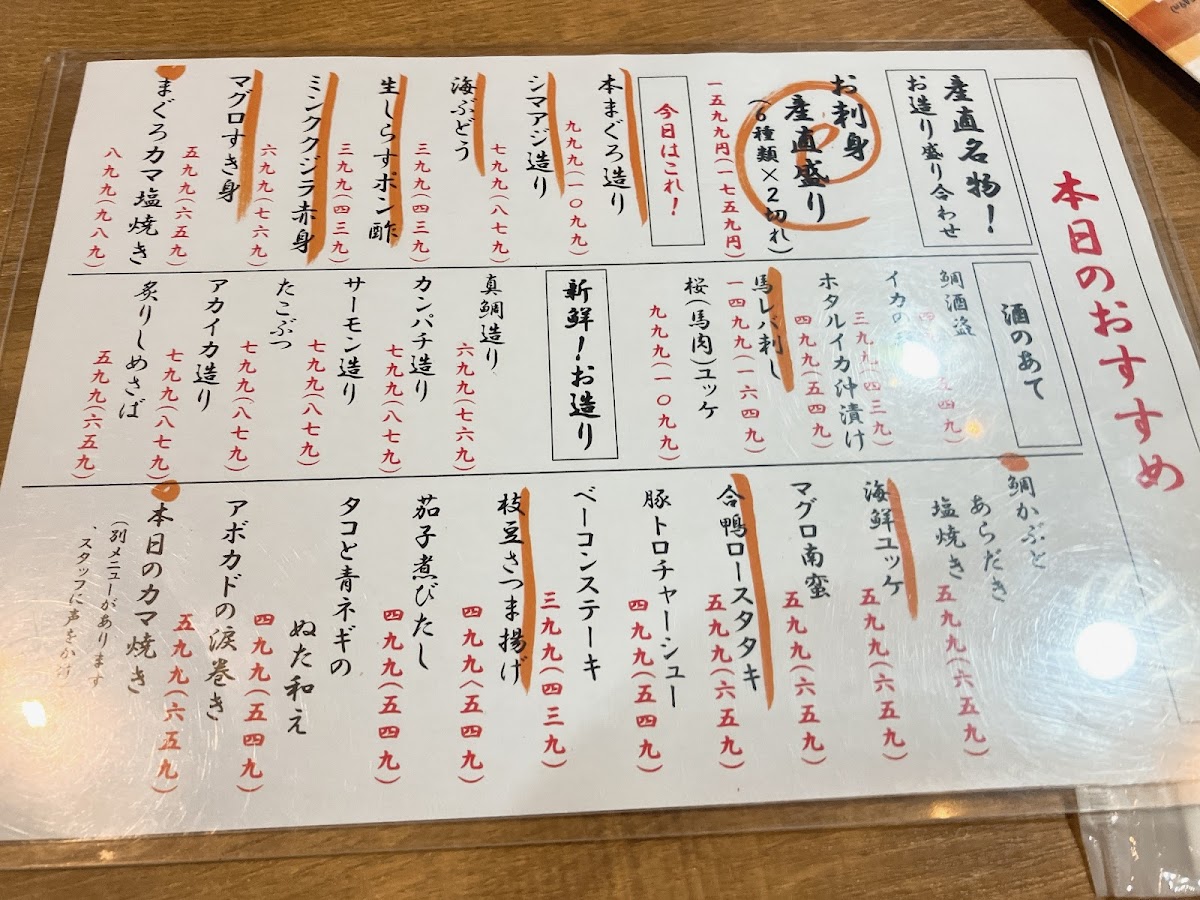 本日のおすすめ
産直名物!
お造り盛り合わせ
お刺身
産直盛り
(6種類×2切れ)
一五九九円(一七五九円)
今日はこれ!
本まぐろ造り
九九九(一〇九九)
シマアジ造り
七九九(八七九)
海ぶどう
三九九(四三九)
生しらすポン酢
三九九(四三九)
ミンククジラ赤身
六九九(七六九)
マグロすき身
五九九(六五九)
まぐろカマ塩焼き
八九九(九八九)
酒のあて
鯛酒盗
イカの
三九九(四三九)
ホタルイカ沖漬け
四九九(五四九)
馬レバ刺し
一四九九(一六四九)
桜(馬肉)ユッケ
九九九(一〇九九)
新鮮!お造り
真鯛造り
六九九(七六九)
カンパチ造り
七九九(八七九)
サーモン造り
七九九(八七九)
たこぶつ
七九九(八七九)
アカイカ造り
七九九(八七九)
炙りしめさば
五九九(六五九)
鯛かぶと
あらだき
塩焼き
五九九(六五九)
海鮮ユッケ
五九九(六五九)
マグロ南蛮
五九九(六五九)
合鴨ロースタタキ
五九九(六五九)
豚トロチャーシュー
四九九(五四九)
ベーコンステーキ
三九九(四三九)
枝豆さつま揚げ
四九九(五四九)
茄子煮びたし
四九九(五四九)
タコと青ネギの
ぬた和え
四九九(五四九)
アボカドの涙巻き
五九九(六五九)
本日のカマ焼き
(別メニューがあります
、スタッフに声をかけ